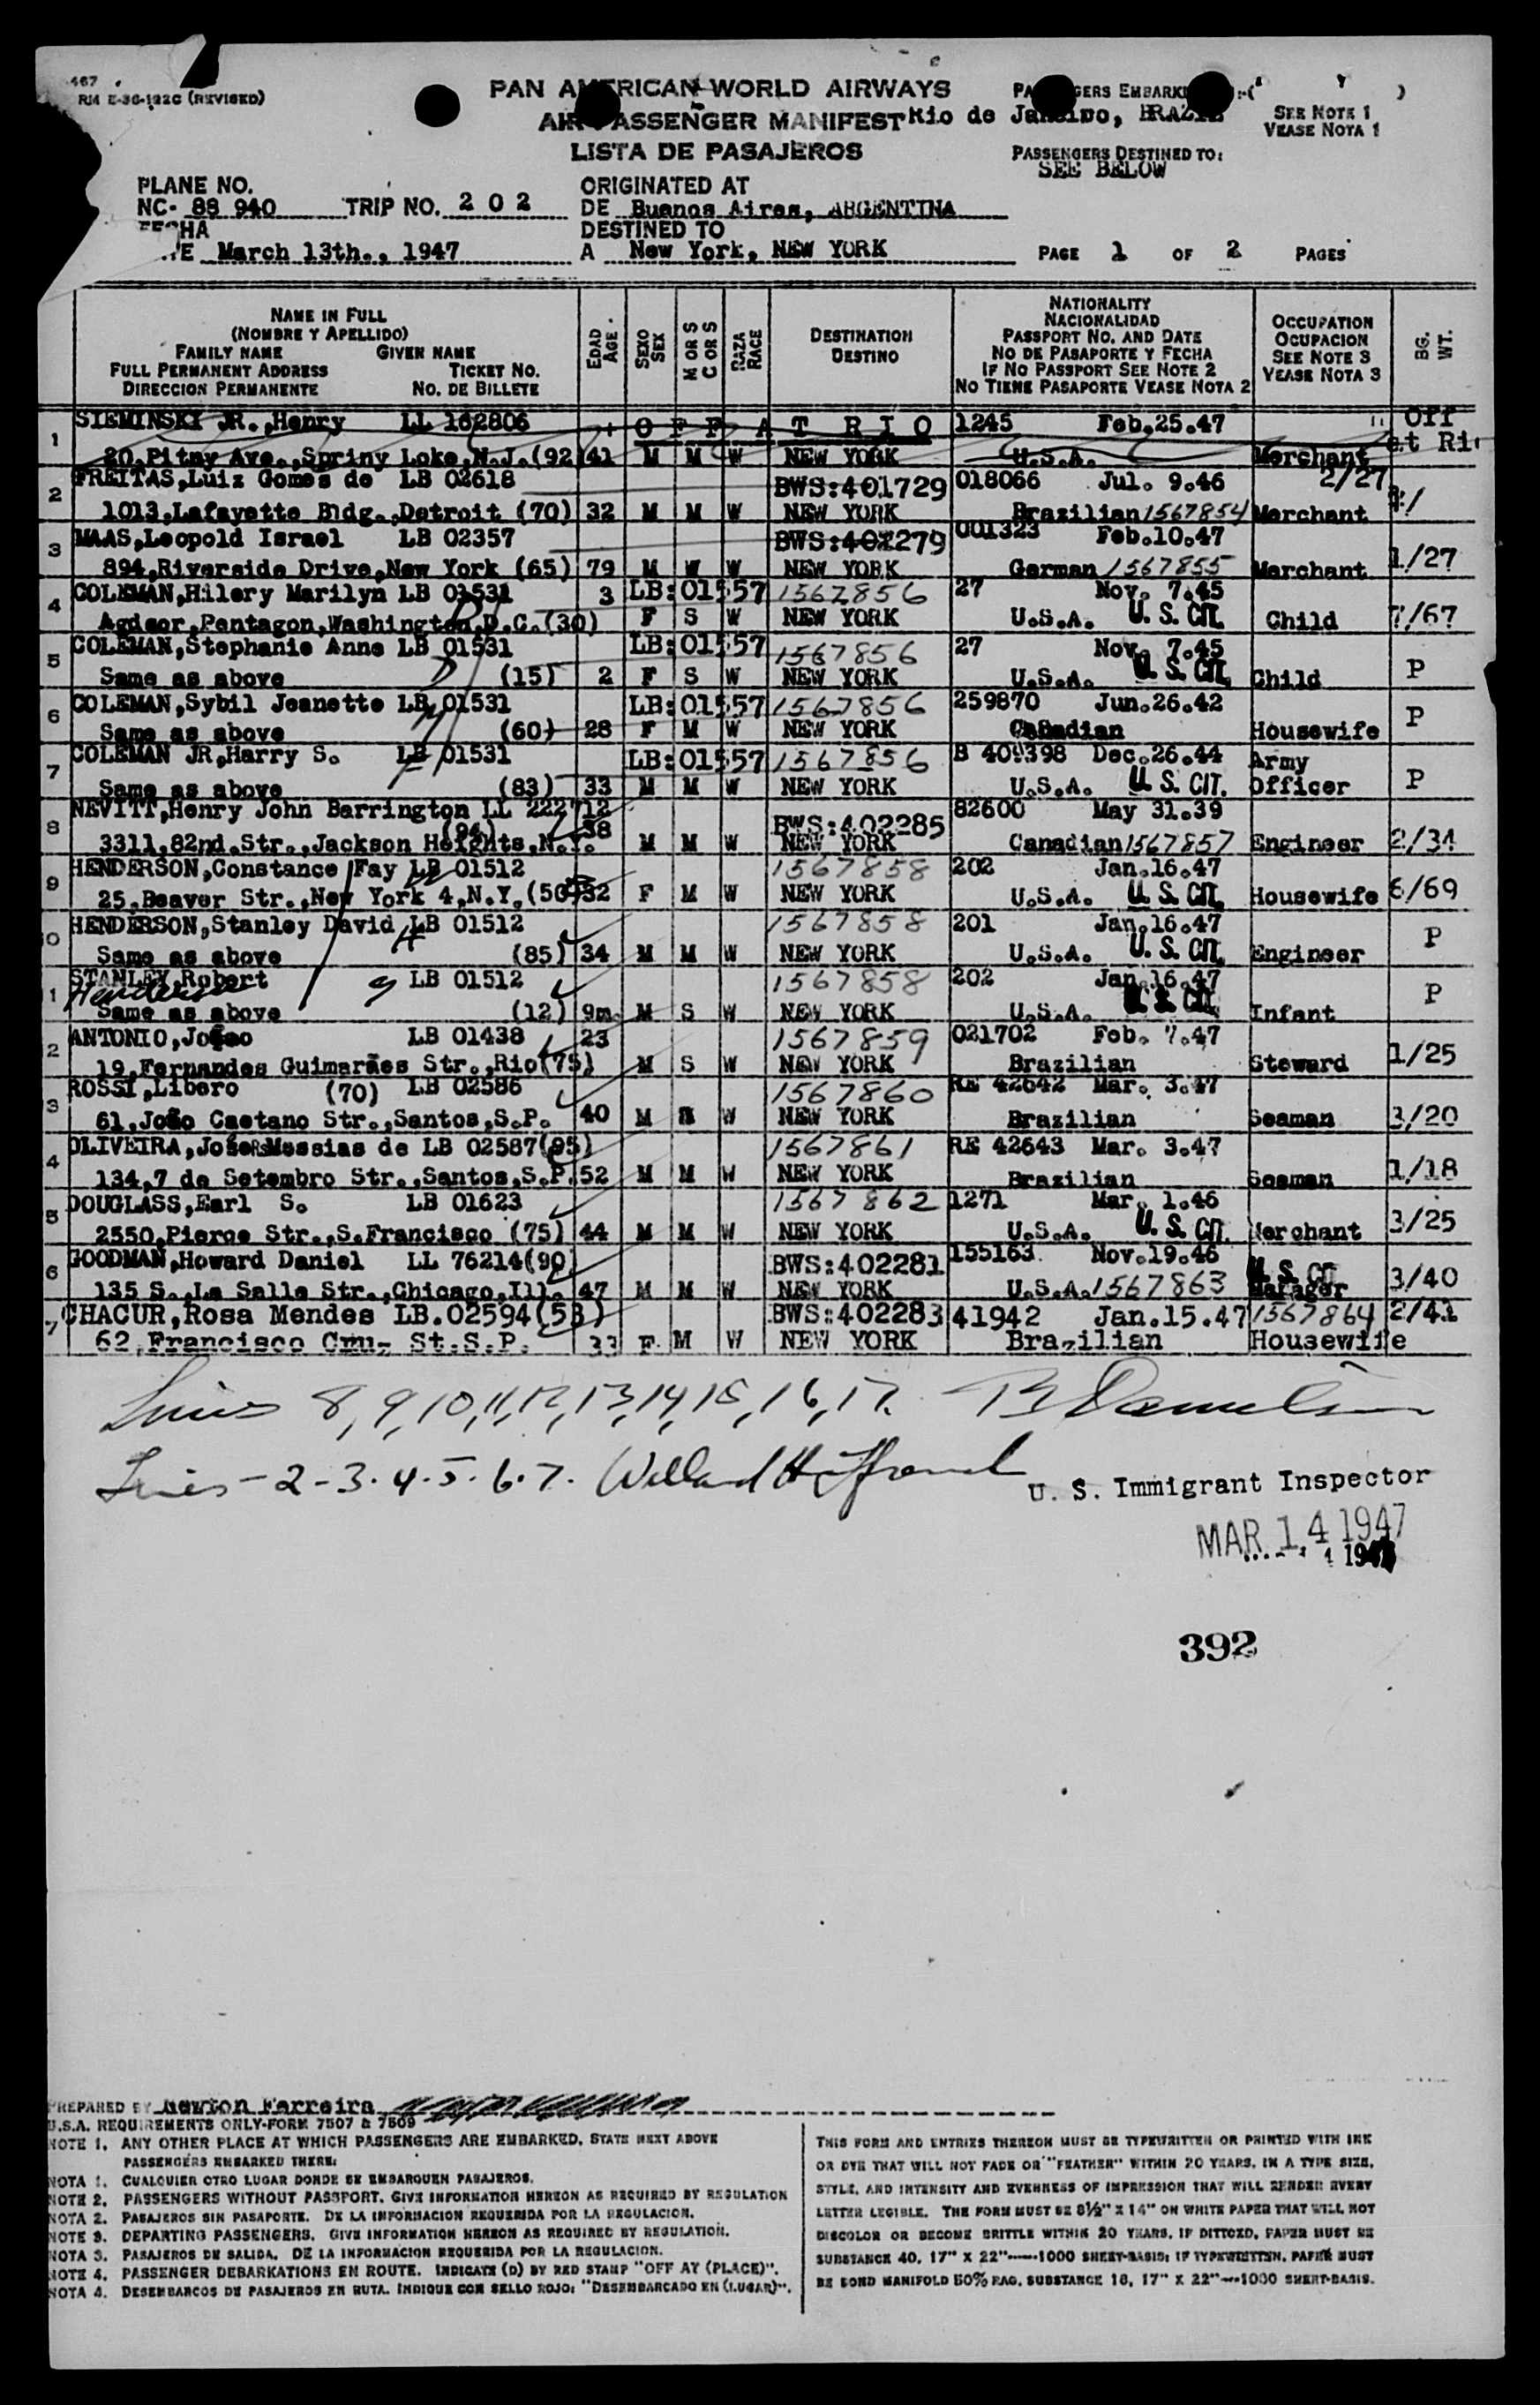 467
RM E-36-122C (REVISED)
PAN AMERICAN WORLD AIRWAYS
AIR PASSENGER MANIFEST
LISTA DE PASAJEROS
PASSENGERS EMBARKED
Rio de Janeiro, BRAZIL
SEE NOTE 1
VEASE NOTA 1
PASSENGERS DESTINED TO:
SEE BELOW
PLANE NO.
NC- 88 940 TRIP NO. 2 0 2
ORIGINATED AT
DE Buenos Aires, ARGENTINA
FECHA
March 13th., 1947
DESTINED TO
A New York, NEW YORK
PAGE 1 OF 2 PAGES
NAME IN FULL
(NOMBRE Y APELLIDO)
FAMILY NAME GIVEN NAME
FULL PERMANENT ADDRESS TICKET NO.
DIRECCION PERMANENTE NO. DE BILLETE
EDAD AGE
SEXO SEX
M OR S C OR S
RAZA RACE
DESTINATION
DESTINO
NATIONALITY
NACIONALIDAD
PASSPORT NO. AND DATE
NO DE PASAPORTE Y FECHA
IF NO PASSPORT SEE NOTE 2
NO TIENE PASAPORTE VEASE NOTA 2
OCCUPATION
OCUPACION
SEE NOTE 3
VEASE NOTA 3
BG. WT.
1 SIEMINSKI JR.,Henry LL 162806 O F F A T R I O 1245 Feb.25.47 Off
20,Pitny Ave.,Spriny Loke,N.J.(92) 41 M M W NEW YORK U.S.A. Merchant at Rio
2 FREITAS,Luiz Gomes de LB 02618 BWS:401729 018066 Jul. 9.46 2/27
1013,Lafayette Bldg.,Detroit (70) 32 M M W NEW YORK Brazilian 1567854 Merchant
3 MAAS,Leopold Israel LB 02357 BWS:402279 001323 Feb.10.47
894,Riverside Drive,New York (65) 79 M W W NEW YORK German 1567855 Merchant 1/27
4 COLEMAN,Hilery Marilyn LB 01531 3 LB:01557 1567856 27 Nov. 7.45
Agdaor,Pentagon,Washington,D.C.(30) F S W NEW YORK U.S.A. U. S. CIT. Child 7/67
5 COLEMAN,Stephanie Anne LB 01531 LB:01557 1567856 27 Nov. 7.45
Same as above (15) 2 F S W NEW YORK U.S.A. U. S. CIT. Child P
6 COLEMAN,Sybil Jeanette LB 01531 LB:01557 1567856 259870 Jun.26.42
Same as above (60) 28 F M W NEW YORK Canadian Housewife P
7 COLEMAN JR,Harry S. LB 01531 LB:01557 1567856 B 409398 Dec.26.44 Army
Same as above (83) 33 M M W NEW YORK U.S.A. U. S. CIT. Officer P
8 NEVITT,Henry John Barrington LL 222712 BWS:402285 82600 May 31.39
3311,82nd.Str.,Jackson Heights,N.Y. (94) 38 M M W NEW YORK Canadian 1567857 Engineer 2/34
9 HENDERSON,Constance Fay LB 01512 1567858 202 Jan.16.47
25,Beaver Str.,New York 4,N.Y.(50) 32 F M W NEW YORK U.S.A. U. S. CIT. Housewife 6/69
0 HENDERSON,Stanley David LB 01512 1567858 201 Jan.16.47
Same as above (85) 34 M M W NEW YORK U.S.A. U. S. CIT. Engineer P
1 STANLEY,Robert LB 01512 1567858 202 Jan.16.47
Henderson
Same as above (12) 9m. M S W NEW YORK U.S.A. U. S. CIT. Infant P
2 ANTONIO,Joao LB 01438 23 1567859 021702 Feb. 7.47
19,Fernandes Guimarães Str.,Rio(75) M S W NEW YORK Brazilian Steward 1/25
3 ROSSI,Libero (70) LB 02586 1567860 RE 42642 Mar. 3.47
61,João Caetano Str.,Santos,S.P. 40 M W NEW YORK Brazilian Seaman 3/20
4 OLIVEIRA,José Messias de LB 02587(95) 1567861 RE 42643 Mar. 3.47
134,7 de Setembro Str.,Santos,S.P. 52 M M W NEW YORK Brazilian Seaman 1/18
5 DOUGLASS,Earl S. LB 01623 1567862 1271 Mar. 1.46
2550,Pierce Str.,S.Francisco (75) 44 M M W NEW YORK U.S.A. U. S. CIT. Merchant 3/25
6 GOODMAN,Howard Daniel LL 76214(90) BWS:402281 155163 Nov.19.46 U. S. CIT.
135 S.,La Salle Str.,Chicago,Ill. 47 M M W NEW YORK U.S.A. 1567863 Manager 3/40
7 CHACUR,Rosa Mendes LB.02594(58) BWS:402283 41942 Jan.15.47 1567864 2/41
62,Francisco Cruz St.S.P. 33 F M W NEW YORK Brazilian Housewife
Lines 8,9,10,11,12,13,14,15,16,17.
Lines - 2 - 3. 4. 5. 6. 7.
U. S. Immigrant Inspector
MAR 14 1947
392
PREPARED BY Newton Farreira
U.S.A. REQUIREMENTS ONLY-FORM 7507 & 7509
NOTE 1. ANY OTHER PLACE AT WHICH PASSENGERS ARE EMBARKED, STATE NEXT ABOVE
PASSENGERS EMBARKED THERE:
NOTA 1. CUALQUIER OTRO LUGAR DONDE SE EMBARQUEN PASAJEROS.
NOTE 2. PASSENGERS WITHOUT PASSPORT. GIVE INFORMATION HEREON AS REQUIRED BY REGULATION
NOTA 2. PASAJEROS SIN PASAPORTE. DE LA INFORMACION REQUERIDA POR LA REGULACION.
NOTE 3. DEPARTING PASSENGERS. GIVE INFORMATION HEREON AS REQUIRED BY REGULATION.
NOTA 3. PASAJEROS DE SALIDA. DE LA INFORMACION REQUERIDA POR LA REGULACION.
NOTE 4. PASSENGER DEBARKATIONS EN ROUTE. INDICATE (D) BY RED STAMP "OFF AT (PLACE)".
NOTA 4. DESEMBARCOS DE PASAJEROS EN RUTA. INDIQUE CON SELLO ROJO: "DESEMBARCADO EN (LUGAR)".
THIS FORM AND ENTRIES THEREON MUST BE TYPEWRITTEN OR PRINTED WITH INK
OR DYE THAT WILL NOT FADE OR "FEATHER" WITHIN 20 YEARS, IN A TYPE SIZE,
STYLE, AND INTENSITY AND EVENNESS OF IMPRESSION THAT WILL RENDER EVERY
LETTER LEGIBLE. THE FORM MUST BE 8½" X 14" ON WHITE PAPER THAT WILL NOT
DISCOLOR OR BECOME BRITTLE WITHIN 20 YEARS. IF DITTOED, PAPER MUST BE
SUBSTANCE 40, 17" X 22"----1000 SHEET-BASIS; IF TYPEWRITTEN, PAPER MUST
BE BOND MANIFOLD 50% RAG, SUBSTANCE 16, 17" X 22"---1000 SHEET-BASIS.